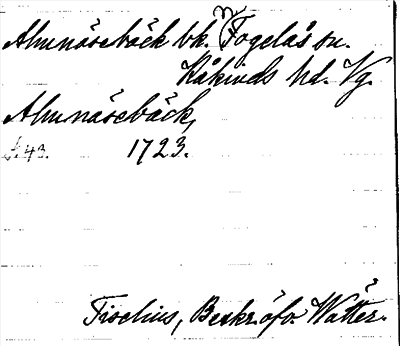 Almnäsebäck bk. N Fogelås sn.
Kåkinds hd. Vg.
Almnäsebäck,
s. 43. 1723.
Tiselius, Beskr. öfv. Wätter.